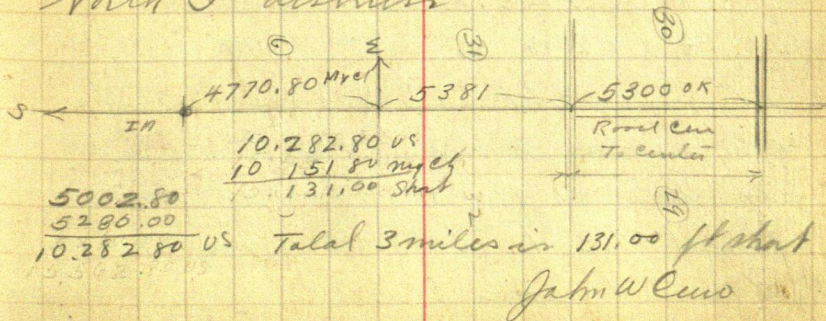 North 3
6 31 30
4770.80 Mycl 5381 5300 OK
S E
In
Road Cen
To Center
10.282.80 US
10 151 80 mych
131.00 Short
29
5002.80
5280.00
10.282 80 US
Total 3 miles is 131.00 ft short
John W